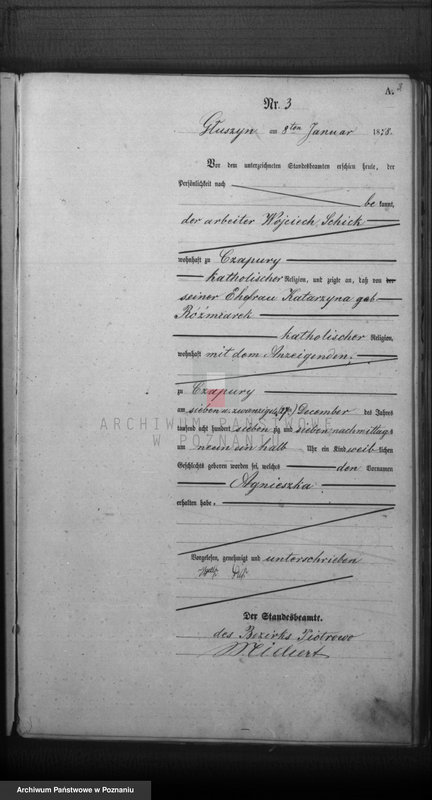 A. 3
Nr. 3
Głuszyn am 8ten Januar 1878.
Vor dem unterzeichneten Standesbeamten erschien heute, der
Persönlichkeit nach
be kannt,
der arbeiter Wojciech Schick
wohnhaft zu Czapury
katholischer Religion, und zeigte an, daß von der
seiner Ehefrau Katarzyna geb
Róźmiarek
katholischer Religion,
wohnhaft mit dem Anzeigenden,
zu Czapury
am sieben u. zwanzigsten (27) December des Jahres
tausend acht hundert sieben zig und sieben nachmittags
um neun ein halb Uhr ein Kind weib lichen
Geschlechts geboren worden sei, welches den Vornamen
Agnieszka
erhalten habe.
Vorgelesen, genehmigt und unterschrieben
Der Standesbeamte.
des Bezirks Piotrowo
ARCHIWUM PAŃSTWOWE W POZNANIU
Archiwum Państwowe w Poznaniu